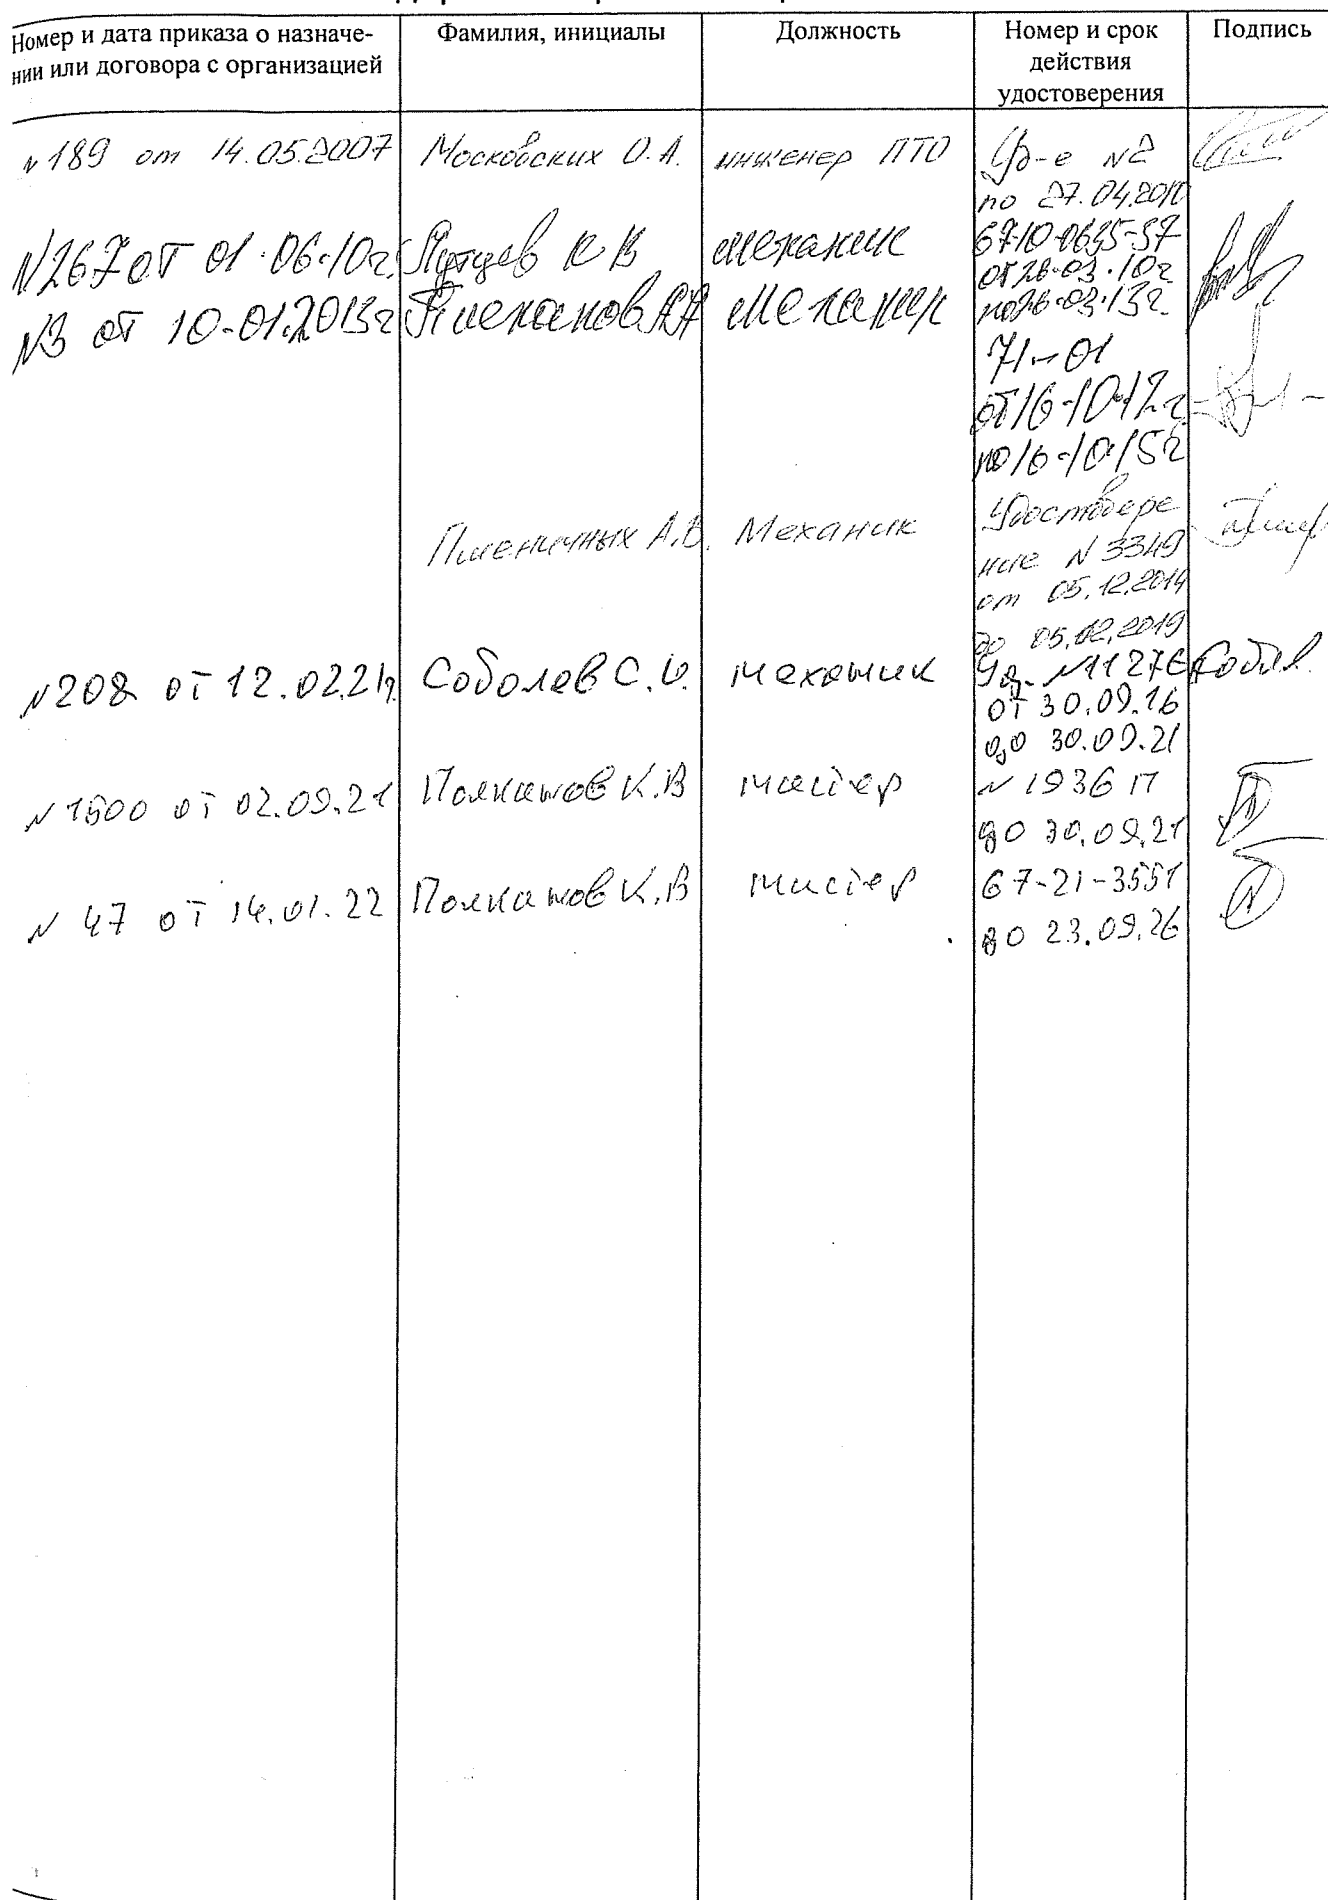 Номер и дата приказа о назначе-
нии или договора с организацией
Фамилия, инициалы
Должность
Номер и срок
действия
удостоверения
Подпись
№189 от 14.05.2007 Московских О.А. инженер ПТО Уд-е №2
по 27.04.2010
№267 от 01.06.10г. К В механик 67-10-0635-57
от 26.03.10г
по 26.03.13г.
№3 от 10-01.2013г Плеханов АА механик
71-01
от 16-10-12г
по 16-10-15г
Пшеничных А.В. Механик Удостовере
ние N 3349
от 05.12.2014
до 05.02.2019
№208 от 12.02.21г. Соболев С.И. механик Уд. №11276
от 30.09.16
до 30.09.21
№1500 от 02.09.21 Полканов К.В мастер №1936 П
до 30.09.21
№ 47 от 14.01.22 Полканов К.В мастер 67-21-3551
до 23.09.26